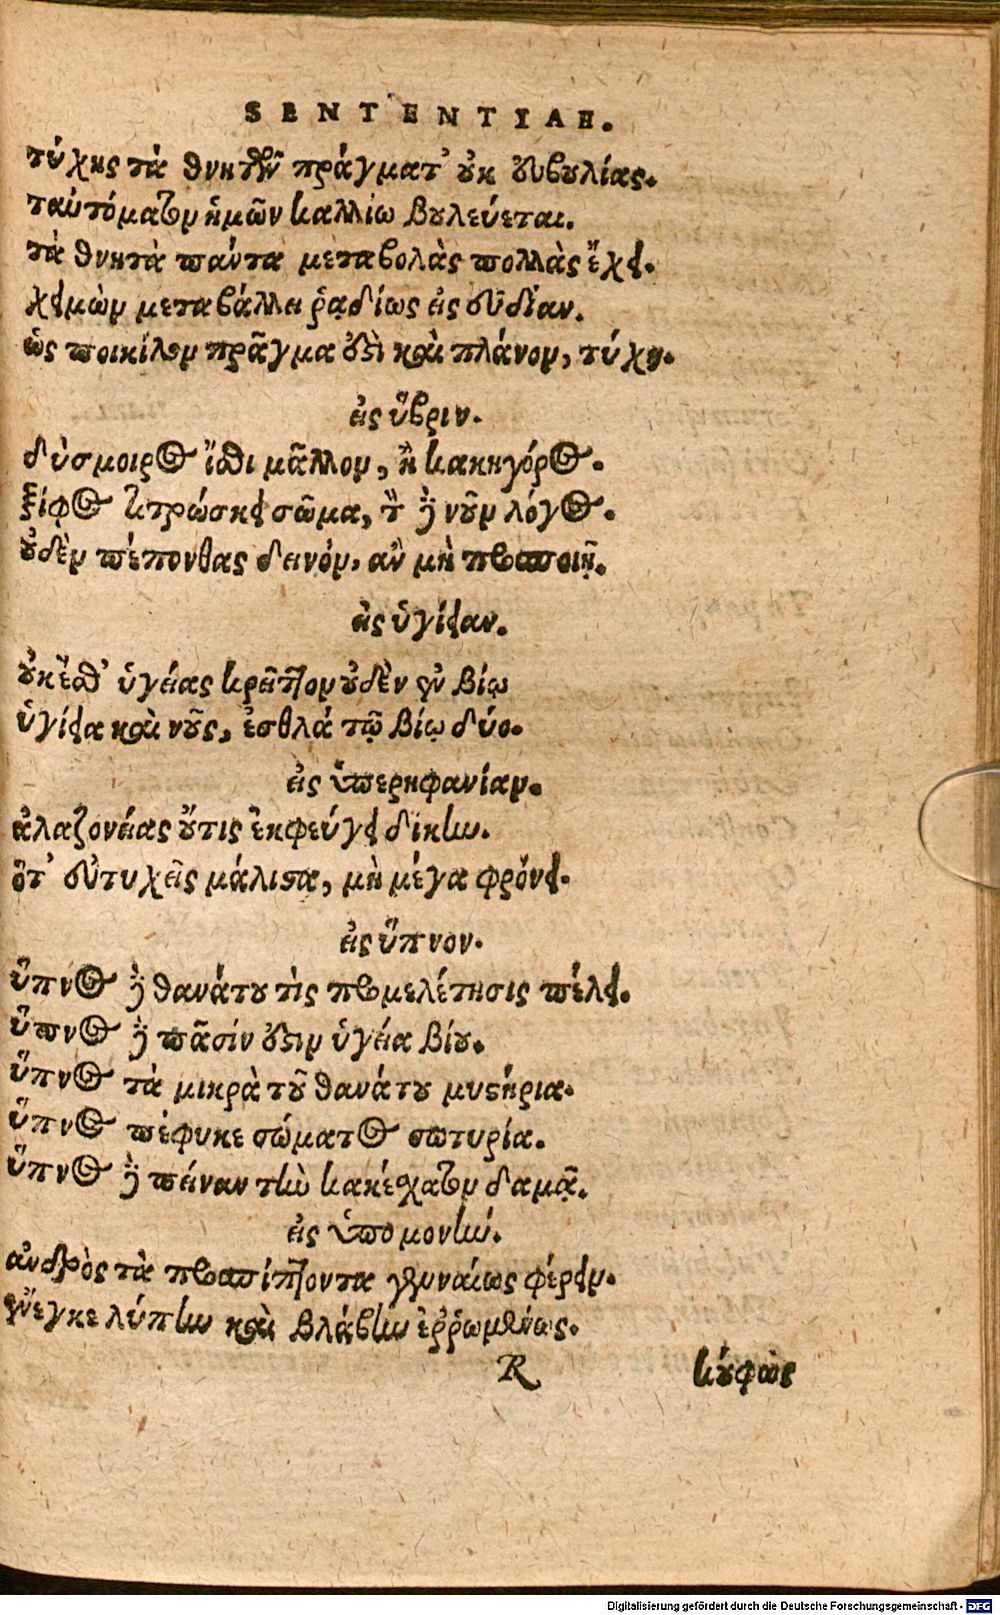 SENTENTIAE.
τύχης τὰ θνητῶν πράγματ' οὐκ εὐβουλίας.
ταυτόματον ἡμῶν καλλίω βουλεύεται.
τὰ θνητὰ πάντα μεταβολὰς πολλὰς ἔχει.
χειμὼν μεταβάλλει ῥᾳδίως εἰς εὐδίαν.
ὡς ποικίλον πρᾶγμα ἐστὶ καὶ πλάνον, τύχη.
εἰς ὕβριν.
δύσμορος ἴσθι μᾶλλον, ἢ κακηγόρος.
ξίφος τιτρώσκει σῶμα, τὸ δὲ νοῦν λόγος.
οὐδὲν πέπονθας δεινὸν, ἂν μὴ προσποιῇ.
εἰς ὑγίειαν.
οὐκ ἔσθ' ὑγείας κρεῖττον οὐδὲν ἐν βίῳ
ὑγίεια καὶ νοῦς, ἐσθλὰ τῷ βίῳ δύο.
εἰς ὑπερηφανίαν.
ἀλαζονείας οὔτις ἐκφεύγει δίκην.
ὅτ' εὐτυχεῖς μάλιστα, μὴ μέγα φρόνει.
εἰς ὕπνον.
ὕπνος δὲ θανάτου τὶς προμελέτησις πέλει.
ὕπνος δὲ πᾶσίν ἐστιν ὑγεία βίου.
ὕπνος τὰ μικρὰ τοῦ θανάτου μυστήρια.
ὕπνος πέφυκε σώματος σωτυρία.
ὕπνος δὲ πείναν τὴν κακέσχατον δαμᾷ.
εἰς ὑπομονήν.
ἀνδρὸς τὰ προσπίπτοντα γενναίως φέρειν.
ἔνεγκε λύπην καὶ βλάβην ἐῤῥωμένως.
R
κούφως
Digitalisierung gefördert durch die Deutsche Forschungsgemeinschaft - DFG